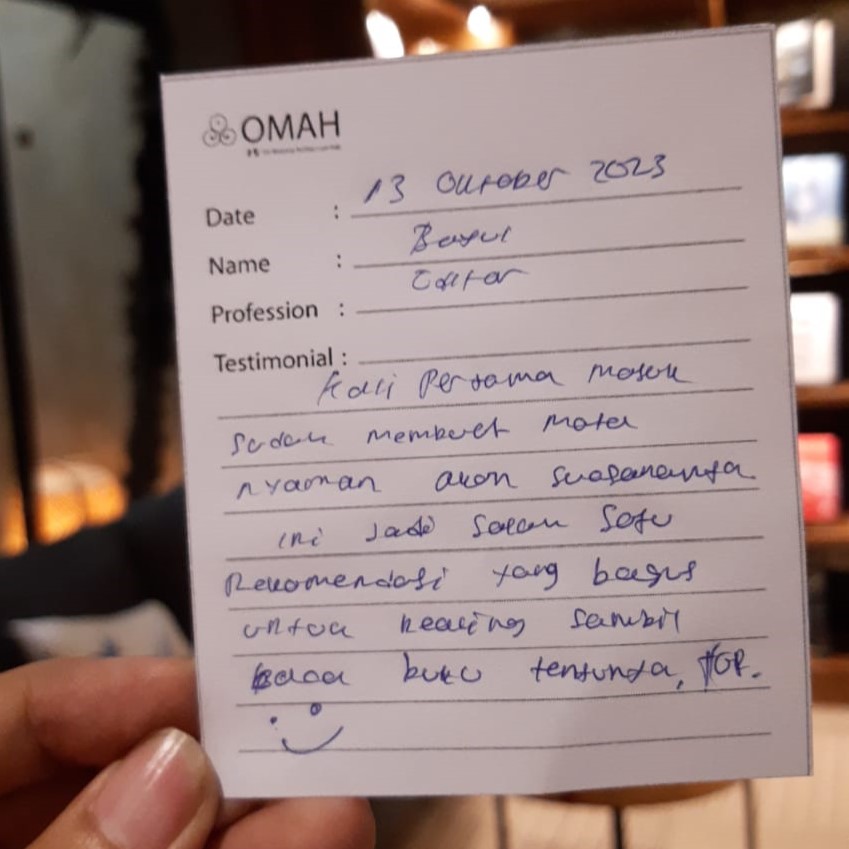 OMAH
Date : 13 Oktober 2023
Name : Bayu
Profession : Editor
Testimonial :
Kali Pertama masuk
sudah membuat mata
nyaman akan suasananya
ini jadi salah satu
Rekomendasi yang bagus
untuk healing sambil
baca buku tentunya, TOP.